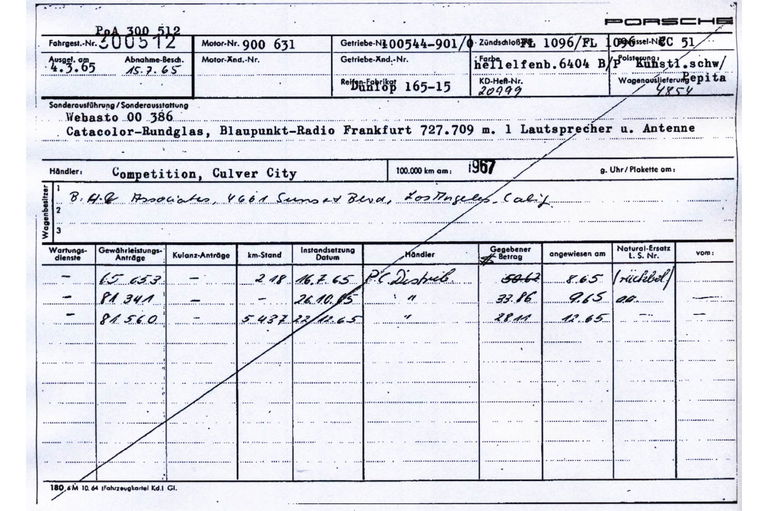 PORSCHE
PoA 300 512
Fahrgest.-Nr. 300512 Motor-Nr. 900 631 Getriebe-Nr. 100544-901/0 Zündschloß-Nr. FL 1096/FL 1096 EC 51
Ausgel. am 4.3.65 Abnahme-Besch. 15.7.65 Motor-Änd.-Nr. Getriebe-Änd.-Nr. Farbe hellelfenb.6404 B/P Polsterung Kunstl.schw/
Pepita
Reifen-Fabrikat Dunlop 165-15 KD-Heft-Nr. 20999 Wagenauslieferung 4854
Sonderausführung/Sonderausstattung
Webasto 00 386
Catacolor-Rundglas, Blaupunkt-Radio Frankfurt 727.709 m. 1 Lautsprecher u. Antenne
Händler: Competition, Culver City 100.000 km am: 1967 g. Uhr/Plakette am:
Wagenbesitzer
1 Associates, 4661 Sunset Blvd, Los Angeles, Calif
2
3
Wartungs-dienste Gewährleistungs-Anträge Kulanz-Anträge km-Stand Instandsetzung Datum Händler Gegebener Betrag angewiesen am Natural-Ersatz L. S. Nr. vom:
- 65 653 - 218 16.7.65 P.C. Distrib. 50.62 8.65 /rückbel/
- 81 341 - - 26.10.65 " 33.86 9.65 —
- 81 560 - 5 437 22/12.65 " 28.11 12.65 - -
180, 6 M 10. 64 (Fahrzeugkartei Kd.) Gl.